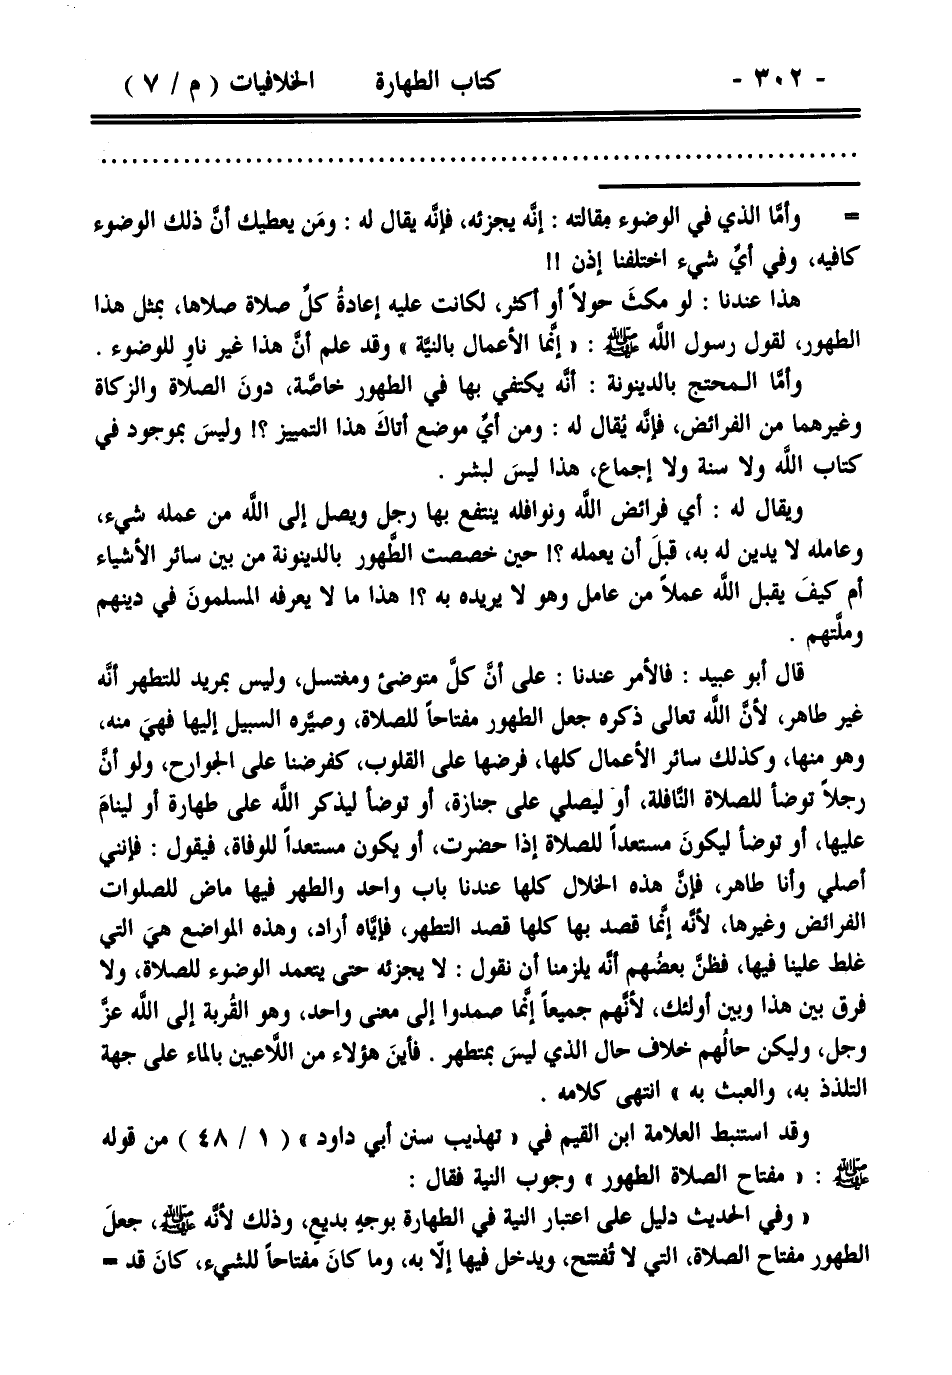 - ٣٠٢ - كتاب الطهارة الخلافيات ( م / ٧ )
................................................................................
= وأمَّا الذي في الوضوء مِقالته : إنَّه يجزئه، فإنَّه يقال له : ومَن يعطيك أنَّ ذلك الوضوء
كافيه، وفي أيِّ شيء اختلفنا إذن !!
هذا عندنا : لو مكثَ حولاً أو أكثر، لكانت عليه إعادةُ كلِّ صلاة صلاها، بمثل هذا
الطهور، لقول رسول اللَّه ﷺ : « إنَّما الأعمال بالنيَّة » وقد علم أنَّ هذا غير ناوٍ للوضوء .
وأمَّا المحتج بالدينونة : أنَّه يكتفي بها في الطهور خاصَّة، دونَ الصلاة والزكاة
وغيرهما من الفرائض، فإنَّه يُقال له : ومن أيِّ موضع أتاكَ هذا التمييز ؟! وليسَ بموجود في
كتاب اللَّه ولا سنة ولا إجماع، هذا ليسَ لبشر .
ويقال له : أي فرائض اللَّه ونوافله ينتفع بها رجل ويصل إلى اللَّه من عمله شيء،
وعامله لا يدين له به، قبلَ أن يعمله ؟! حين خصصت الطَّهور بالدينونة من بين سائر الأشياء
أم كيفَ يقبل اللَّه عملاً من عامل وهو لا يريده به ؟! هذا ما لا يعرفه المسلمونَ في دينهم
وملَّتهم .
قال أبو عبيد : فالأمر عندنا : على أنَّ كلَّ متوضئ ومغتسل، وليس بمريد للتطهر أنَّه
غير طاهر، لأنَّ اللَّه تعالى ذكره جعل الطهور مفتاحاً للصلاة، وصيَّره السبيل إليها فهيَ منه،
وهو منها، وكذلك سائر الأعمال كلها، فرضها على القلوب، كفرضنا على الجوارح، ولو أنَّ
رجلاً توضأ للصلاة النَّافلة، أو ليصلي على جنازة، أو توضأ ليذكر اللَّه على طهارة أو لينامَ
عليها، أو توضأ ليكونَ مستعداً للصلاة إذا حضرت، أو يكون مستعداً للوفاة، فيقول : فإنني
أصلي وأنا طاهر، فإنَّ هذه الخلال كلها عندنا باب واحد والطهر فيها ماض للصلوات
الفرائض وغيرها، لأنَّه إنَّما قصد بها كلها قصد التطهر، فإيَّاه أراد، وهذه المواضع هيَ التي
غلط علينا فيها، فظنَّ بعضُهم أنَّه يلزمنا أن نقول : لا يجزئه حتى يتعمد الوضوء للصلاة، ولا
فرق بين هذا وبين أولئك، لأنَّهم جميعاً إنَّما صمدوا إلى معنى واحد، وهو القُربة إلى اللَّه عزَّ
وجل، وليكن حالُهم خلاف حال الذي ليسَ بمتطهر . فأينَ هؤلاء من اللَّاعبين بالماء على جهة
التلذذ به، والعبث به » انتهى كلامه .
وقد استنبط العلامة ابن القيم في « تهذيب سنن أبي داود » ( ١ / ٤٨ ) من قوله
ﷺ : « مفتاح الصلاة الطهور » وجوب النية فقال :
« وفي الحديث دليل على اعتبار النية في الطهارة بوجهٍ بديعٍ، وذلك لأنَّه ﷺ، جعلَ
الطهور مفتاح الصلاة، التي لا تُفتتح، ويدخل فيها إلّا به، وما كانَ مفتاحاً للشيء، كانَ قد =